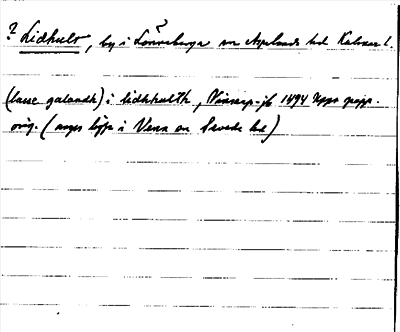 ? Lidhult, by i Lönneberga sn Aspelands hd Kalmar l.
(lasse galandh) i lidhhulth, Vinsarp-jb 1494 Upps papp.
orig. (anges ligga i Vena sn Sevede hd)